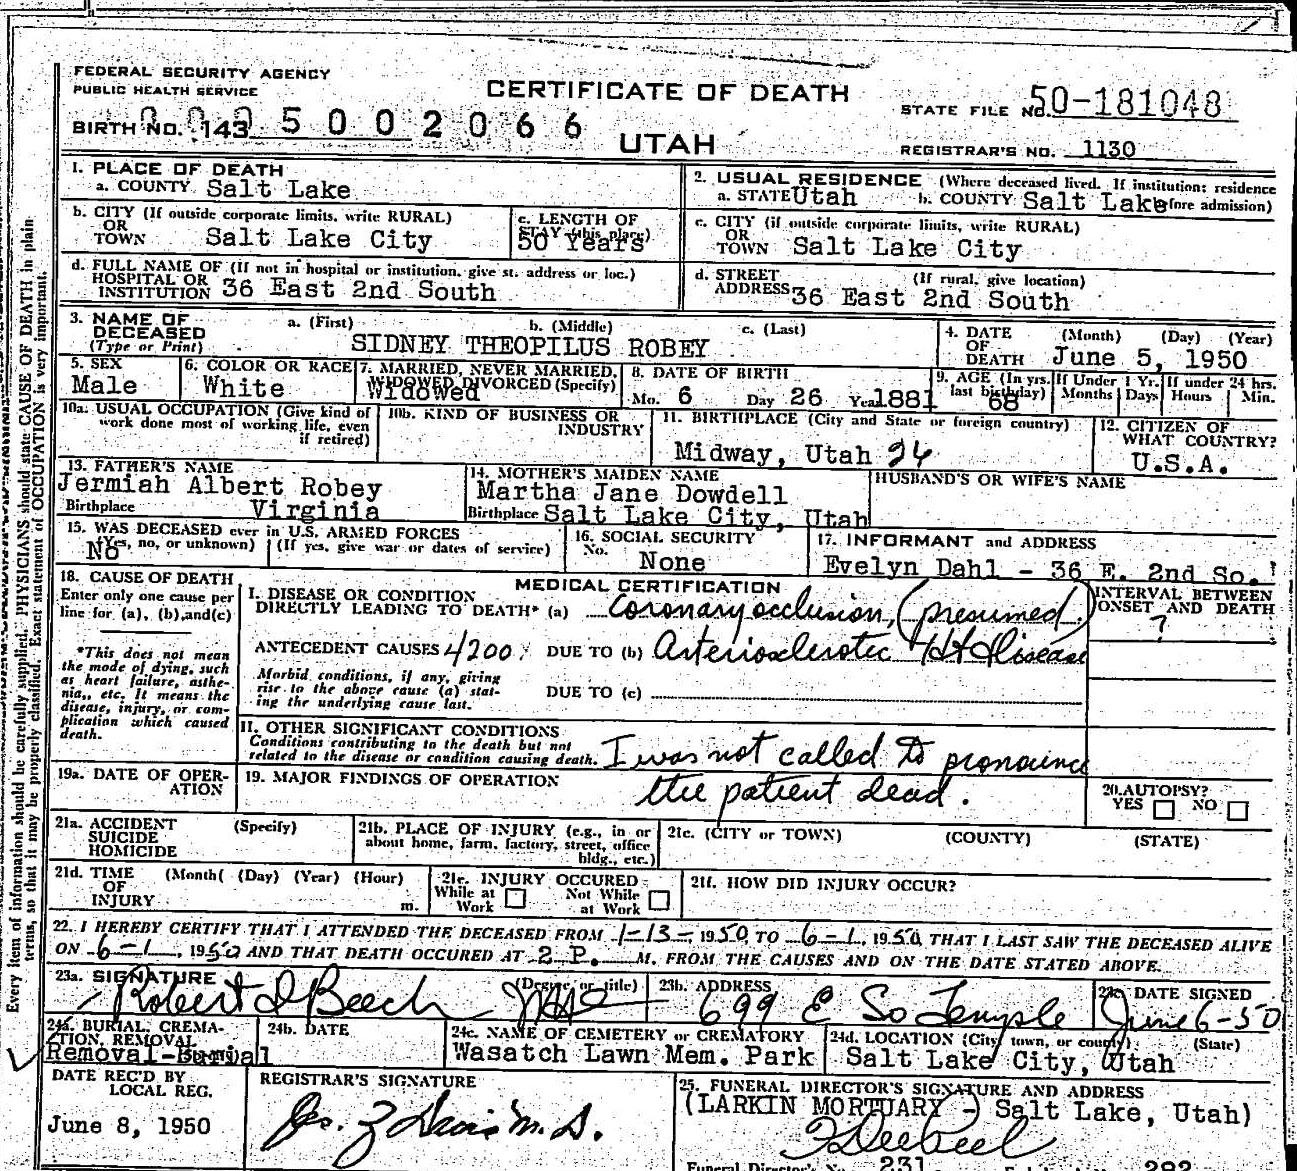 FEDERAL SECURITY AGENCY
PUBLIC HEALTH SERVICE
CERTIFICATE OF DEATH
STATE FILE NO. 50-181048
BIRTH NO. 143 5002066
UTAH
REGISTRAR'S NO. 1130
1. PLACE OF DEATH
a. COUNTY Salt Lake
2. USUAL RESIDENCE (Where deceased lived. If institution: residence before admission)
a. STATE Utah b. COUNTY Salt Lake
b. CITY (If outside corporate limits, write RURAL)
OR
TOWN Salt Lake City
c. LENGTH OF
STAY (this place)
50 Years
c. CITY (if outside corporate limits, write RURAL)
OR
TOWN Salt Lake City
d. FULL NAME OF (If not in hospital or institution, give st. address or loc.)
HOSPITAL OR
INSTITUTION 36 East 2nd South
d. STREET (If rural, give location)
ADDRESS 36 East 2nd South
3. NAME OF
DECEASED
(Type or Print)
a. (First) b. (Middle) c. (Last)
SIDNEY THEOPILUS ROBEY
4. DATE
OF
DEATH
(Month) (Day) (Year)
June 5, 1950
5. SEX
Male
6. COLOR OR RACE
White
7. MARRIED, NEVER MARRIED,
WIDOWED, DIVORCED (Specify)
Widowed
8. DATE OF BIRTH
Mo. 6 Day 26 Year 1881
9. AGE (In yrs.
last birthday)
68
If Under 1 Yr.
Months Days
If under 24 hrs.
Hours Min.
10a. USUAL OCCUPATION (Give kind of
work done most of working life, even
if retired)
10b. KIND OF BUSINESS OR
INDUSTRY
11. BIRTHPLACE (City and State or foreign country)
Midway, Utah 24
12. CITIZEN OF
WHAT COUNTRY?
U.S.A.
13. FATHER'S NAME
Jermiah Albert Robey
Birthplace Virginia
14. MOTHER'S MAIDEN NAME
Martha Jane Dowdell
Birthplace Salt Lake City, Utah
HUSBAND'S OR WIFE'S NAME
15. WAS DECEASED ever in U.S. ARMED FORCES
(Yes, no, or unknown) (If yes, give war or dates of service)
No
16. SOCIAL SECURITY
No.
None
17. INFORMANT and ADDRESS
Evelyn Dahl - 36 E. 2nd So.
18. CAUSE OF DEATH
Enter only one cause per
line for (a), (b), and (c)
*This does not mean
the mode of dying, such
as heart failure, asthe-
nia, etc. It means the
disease, injury, or com-
plication which caused
death.
MEDICAL CERTIFICATION
I. DISEASE OR CONDITION
DIRECTLY LEADING TO DEATH* (a) Coronary occlusion, (presumed.)
INTERVAL BETWEEN
ONSET AND DEATH
?
ANTECEDENT CAUSES 4200 DUE TO (b) Arteriosclerotic Ht Disease
Morbid conditions, if any, giving
rise to the above cause (a) stat-
ing the underlying cause last.
DUE TO (c)
II. OTHER SIGNIFICANT CONDITIONS
Conditions contributing to the death but not
related to the disease or condition causing death.
I was not called to pronounce
the patient dead.
19a. DATE OF OPER-
ATION
19. MAJOR FINDINGS OF OPERATION
20. AUTOPSY?
YES NO
21a. ACCIDENT
SUICIDE
HOMICIDE
(Specify)
21b. PLACE OF INJURY (e.g., in or
about home, farm, factory, street, office
bldg., etc.)
21c. (CITY or TOWN) (COUNTY) (STATE)
21d. TIME
OF
INJURY
(Month( (Day) (Year) (Hour)
m.
21e. INJURY OCCURED
While at
Work
Not While
at Work
21f. HOW DID INJURY OCCUR?
22. I HEREBY CERTIFY THAT I ATTENDED THE DECEASED FROM 1-13-, 1950, TO 6-1, 1950, THAT I LAST SAW THE DECEASED ALIVE
ON 6-1, 1950 AND THAT DEATH OCCURED AT 2 P. M. FROM THE CAUSES AND ON THE DATE STATED ABOVE.
23a. SIGNATURE (Degree or title)
Robert D Beech
23b. ADDRESS
699 E So Temple
23c. DATE SIGNED
June 6-50
24a. BURIAL, CREMA-
TION, REMOVAL
Removal-Burial
24b. DATE
24c. NAME OF CEMETERY or CREMATORY
Wasatch Lawn Mem. Park
24d. LOCATION (City, town, or county) (State)
Salt Lake City, Utah
DATE REC'D BY
LOCAL REG.
June 8, 1950
REGISTRAR'S SIGNATURE
25. FUNERAL DIRECTOR'S SIGNATURE AND ADDRESS
(LARKIN MORTUARY - Salt Lake, Utah)
Funeral Director's No. 231
282
Every item of information should be carefully supplied. PHYSICIANS should state CAUSE OF DEATH in plain
terms, so that it may be properly classified. Exact statement of OCCUPATION is very important.